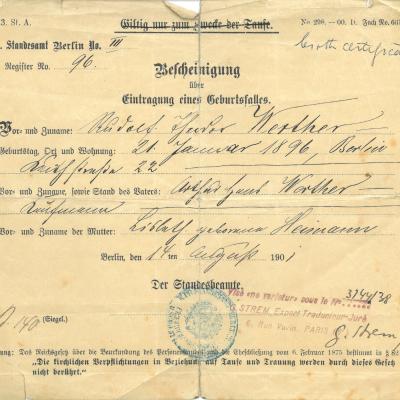 3. St. A.
Giltig nur zum Zwecke der Taufe.
No 298.—00. D. Fach No.
birth certificate
Standesamt Berlin No. III
Register No. 96.
Bescheinigung
über
Eintragung eines Geburtsfalles.
Vor- und Zuname: Rudolf Theodor Werther
Geburtstag, Ort und Wohnung: 21. Januar 1896, Berlin
22
Vor- und Zuname, sowie Stand des Vaters: Arthur Hans Werther
Kaufmann
Vor- und Zuname der Mutter: Lisbeth geborene Heimann
Berlin, den 14 ten August 1901
Der Standesbeamte.
Visé «ne varietur» sous le No 3144/38
STREM, Expert Traducteur-Juré
6, Rue Vavin, PARIS
G. Strem
140 (Siegel.)
Das Reichsgesetz über die Beurkundung des Personenstandes und die Eheschließung vom 6. Februar 1875 bestimmt in § 82
„Die kirchlichen Verpflichtungen in Beziehung auf Taufe und Trauung werden durch dieses Gesetz
nicht berührt.“